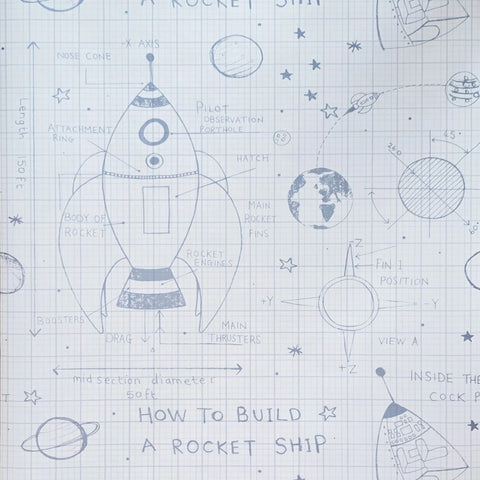 A ROCKET SHIP
-X AXIS
NOSE CONE
PILOT
OBSERVATION
PORTHOLE
ATTACHMENT
RING
HATCH
Length 150ft
BODY OF
ROCKET
MAIN
ROCKET
FINS
ROCKET
ENGINES
BOOSTERS
DRAG
MAIN
THRUSTERS
midsection diameter
50ft
45°
260
-Z
FIN 1
POSITION
+Y
-Y
VIEW A
+Z
INSIDE THE
COCK P
T
HOW TO BUILD
A ROCKET SHIP